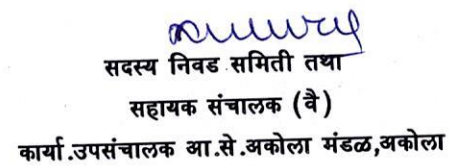 सदस्य निवड समिती तथा
सहायक संचालक (वै)
कार्या.उपसंचालक आ.से.अकोला मंडळ,अकोला